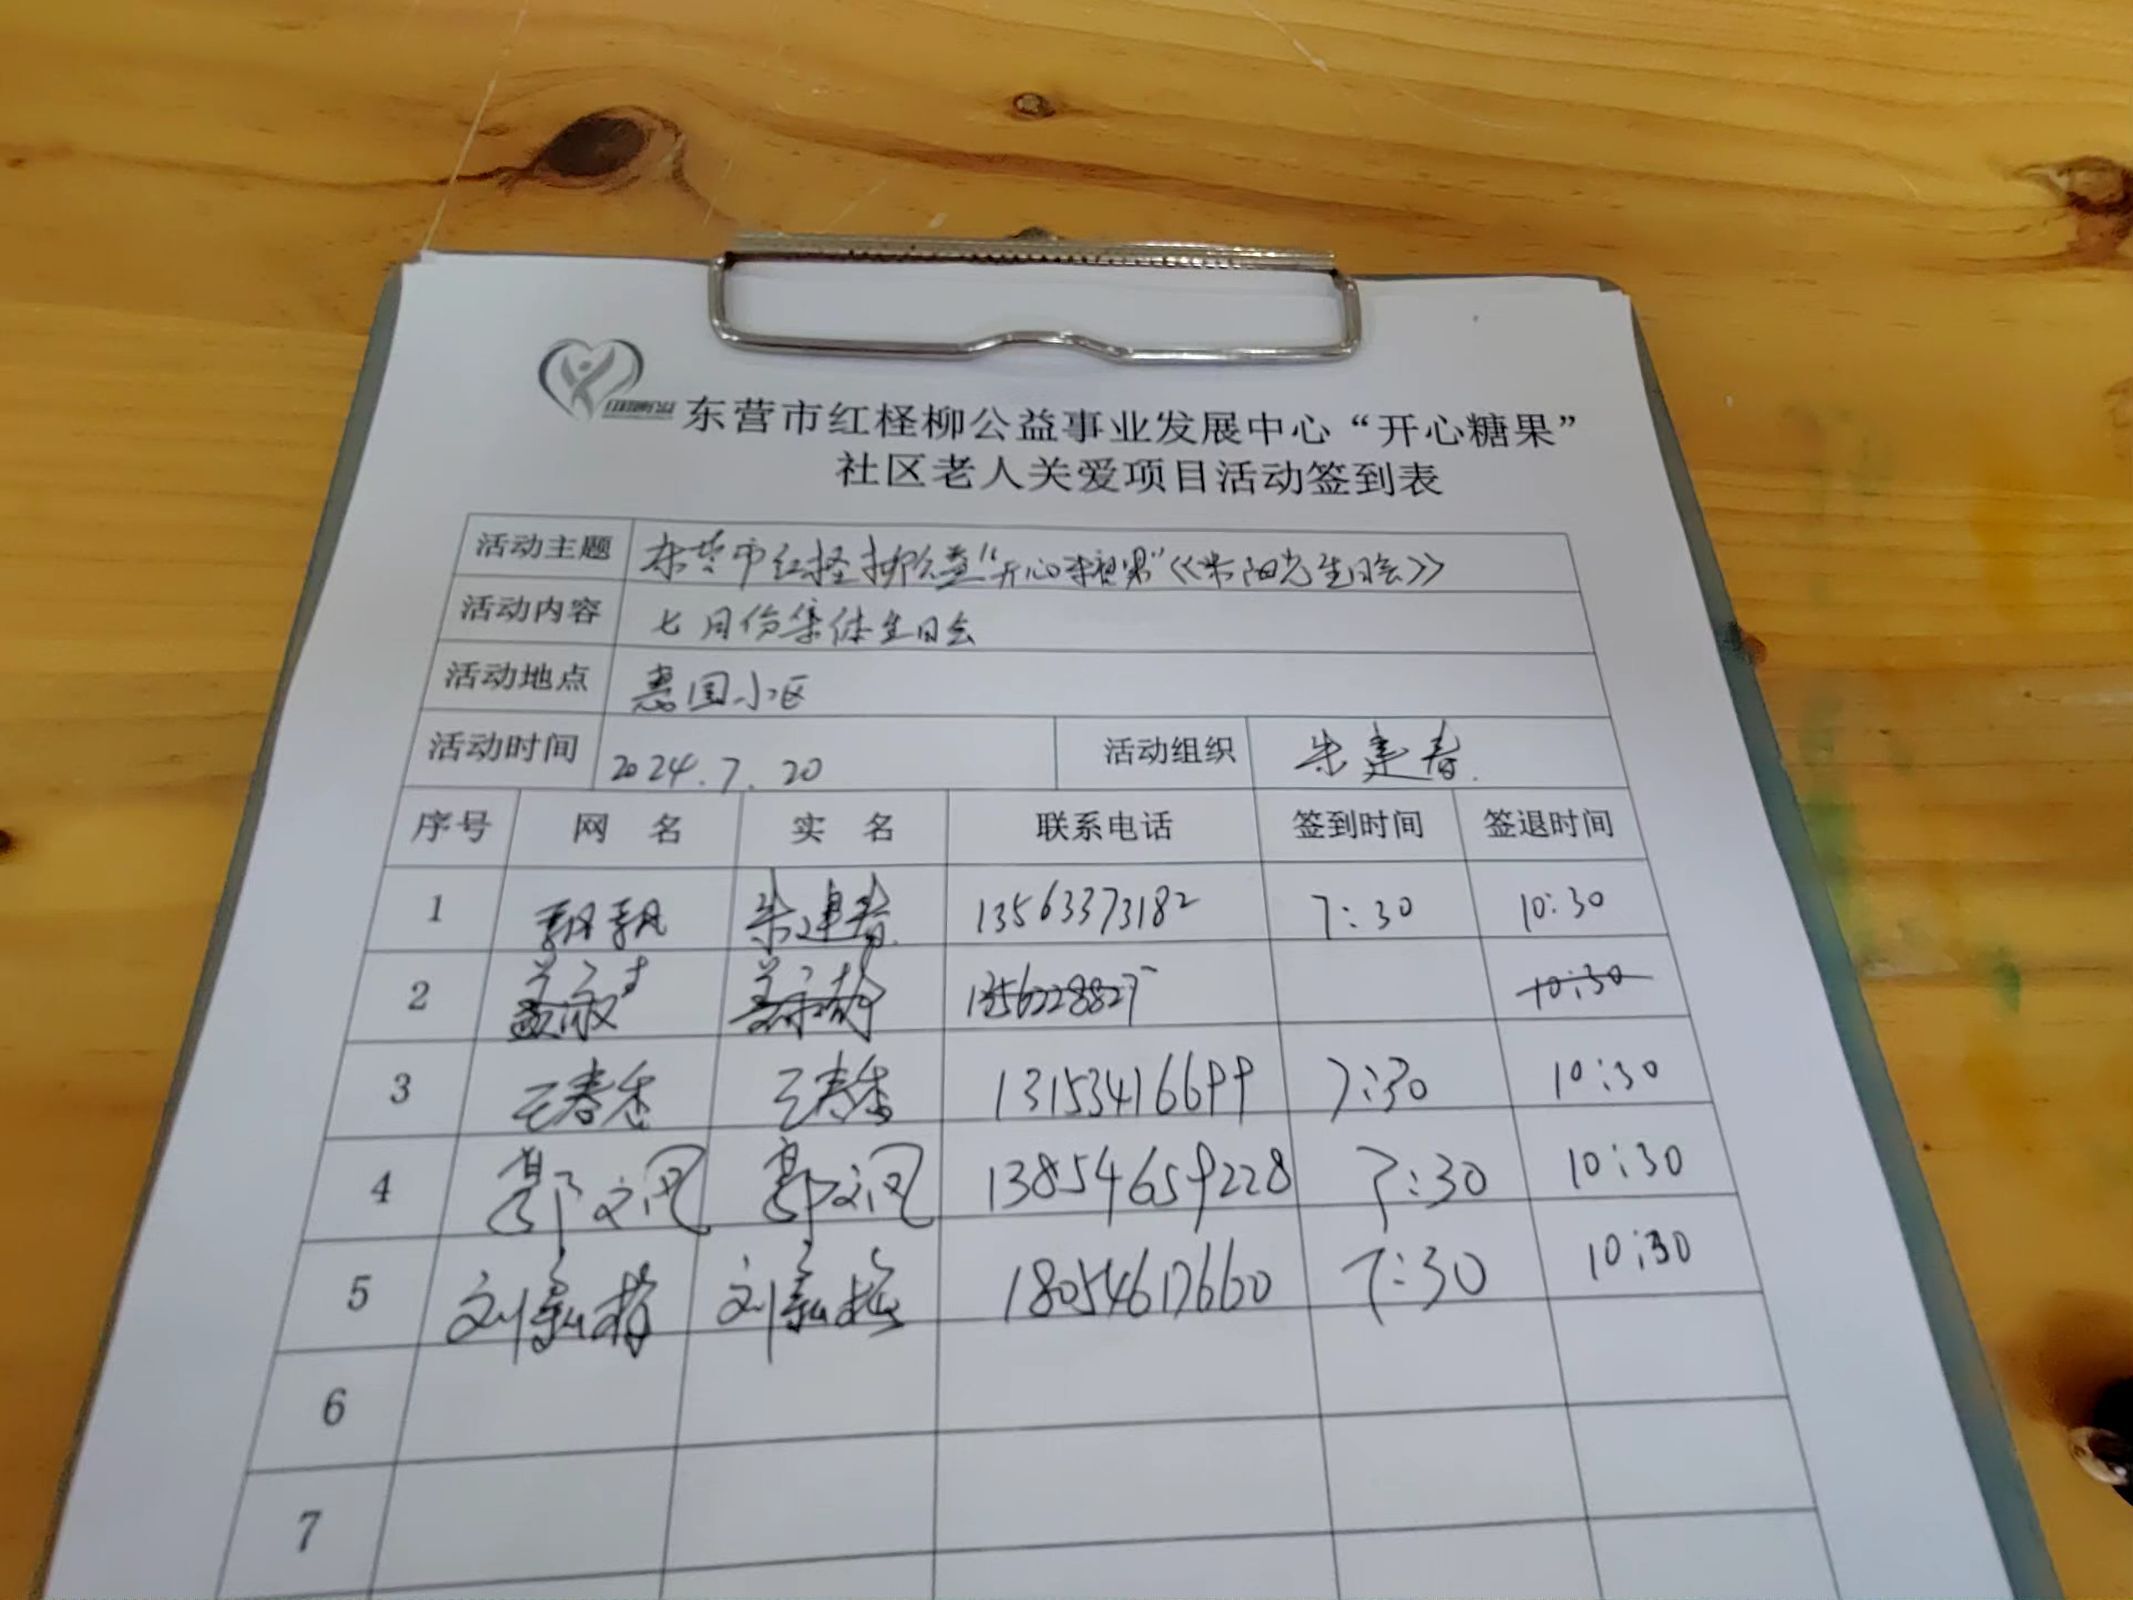 东营市红柽柳公益事业发展中心“开心糖果”
社区老人关爱项目活动签到表
活动主题 东营市红柽柳公益“开心糖果”《《 阳光生日会》》
活动内容 七月份集体生日会
活动地点 惠园小区
活动时间 2024.7.20 活动组织 朱建春
序号 网 名 实 名 联系电话 签到时间 签退时间
1 飘飘 朱建春 13563373182 7:30 10:30
2 10:30
3 王春香 王春香 13153416699 7:30 10:30
4 郭文同 郭文同 13854659228 7:30 10:30
5 刘 梅 刘 梅 18054617660 7:30 10:30
6
7